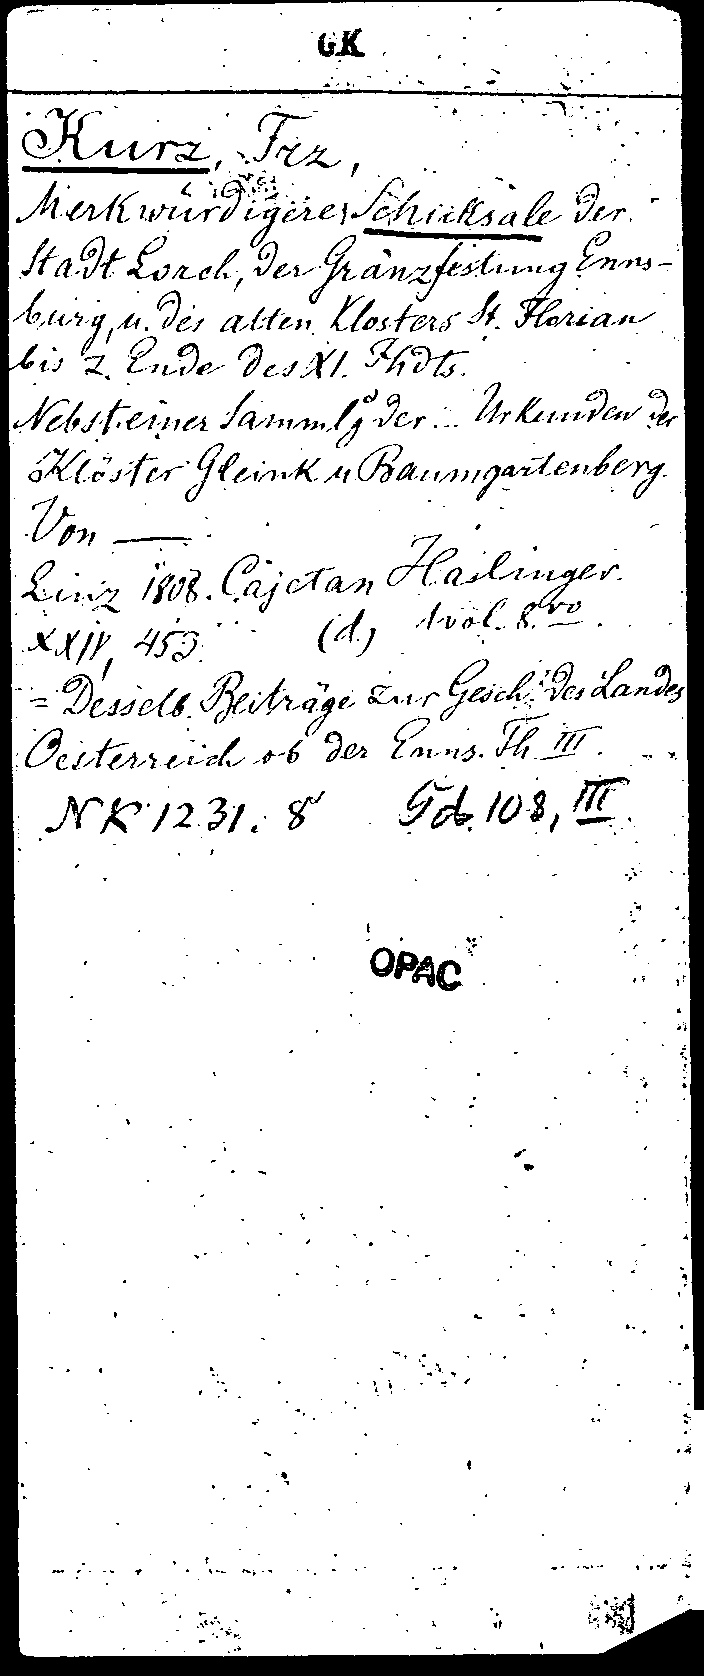 GK
Kurz, Frz,
Merkwürdigere Schicksale der
Stadt Lorch, der Gränzfestung Enns-
burg, u. des alten Klosters St. Florian
bis z. Ende des XI. Jhdts.
Nebst einer Sammlg der ... Urkunden der
Klöster Gleink u Baumgartenberg.
Von —
Linz 1808. Cajetan Haslinger.
XXIV, 453. (d.) 1 vol. 8.vo.
= Desselb. Beiträge zur Gesch. des Landes
Oesterreich ob der Enns. Th III.
NK 1231. 8° Gd. 108, III.
OPAC